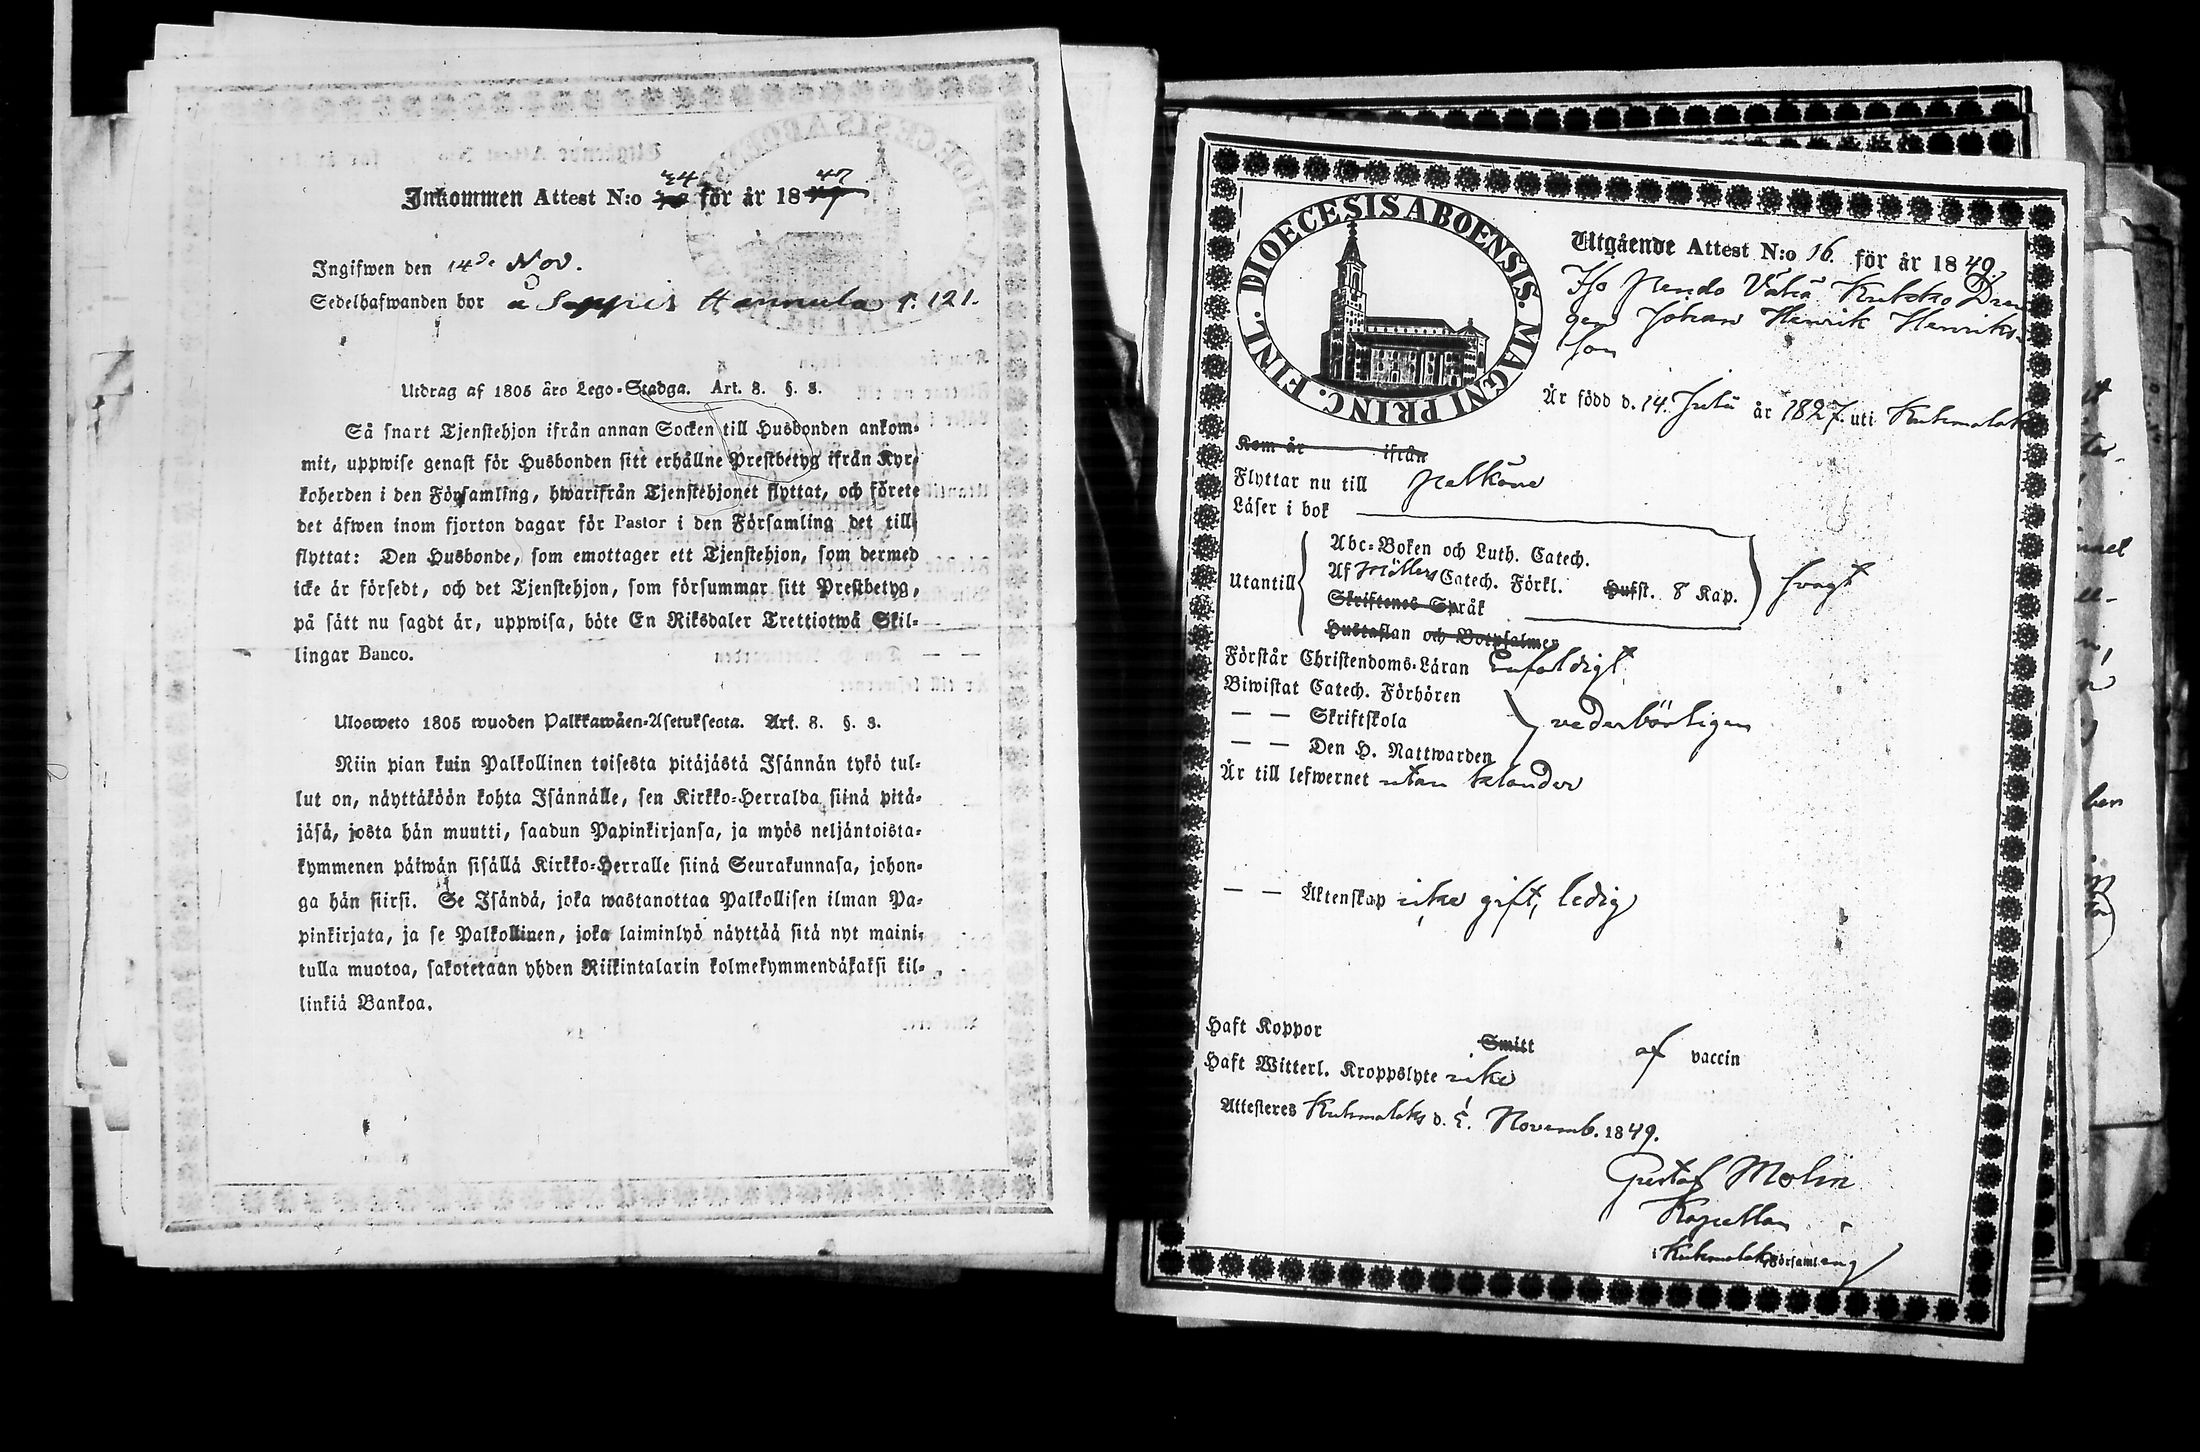 Inkommen Attest N:o 34 för år 1847
Ingifwen den 14de Nov.
Sedelhafwanden bor å Seppis Hannula p. 121.
Utdrag af 1805 års Lego-Stadga. Art. 8. §. 3.
Så snart Tjenstehjon ifrån annan Socken till Husbonden ankom-
mit, uppwise genast för Husbonden sitt erhållne Prestbetyg ifrån Kyr-
koherden i den Församling, hwarifrån Tjenstehjonet flyttat, och förete
det äfwen inom fjorton dagar för Pastor i den Församling det till-
flyttat: Den Husbonde, som emottager ett Tjenstehjon, som dermed
icke är försedt, och det Tjenstehjon, som försummar sitt Prestbetyg,
på sätt nu sagdt är, uppwisa, böte En Riksdaler Trettiotwå Skil-
lingar Banco.
Ulosweto 1805 wuoden Palkkawäen-Asetuksesta. Art. 8. §. 3.
Niin pian kuin Palkollinen toisesta pitäjästä Isännän tykö tul-
lut on, näyttäköön kohta Isännälle, sen Kirkko-Herralda siinä pitä-
jäsä, josta hän muutti, saadun Papinkirjansa, ja myös neljäntoista-
kymmenen päiwän sisällä Kirkko-Herralle siinä Seurakunnasa, johon-
ga hän siirsi. Se Isändä, joka wastanottaa Palkollisen ilman Pa-
pinkirjata, ja se Palkollinen, joka laiminlyö näyttää sitä nyt maini-
tulla muotoa, sakotetaan yhden Riikintalarin kolmekymmendäkaksi kil-
linkiä Bankoa.
DIOECESIS ABOENSIS. MAGNI PRINC. FINL.
Utgående Attest N:o 16. för år 1849.
Iso Pendo Vähä Kutsko Drän
gen Johan Henrik Henriks-
son
Är född d. 14. Julii år 1827. uti Kuhmalaks
Kom år ifrån
Flyttar nu till Pelkäne
Läser i bok
Abc-Boken och Luth. Catech.
Utantill Af Möllers Catech. Förkl. Hufst. 8 Kap. svagt
Skriftenes Språk
Hustaflan och Botpsalmen
Förstår Christendoms-Läran enfaldigt
Biwistat Catech. Förhören
— — Skriftskola vederbörligen
— — Den H. Nattwarden
Är till lefwernet utan klander
— — Äktenskap icke gift, ledig
Haft Koppor Smitt af vaccin
Haft Witterl. Kroppslyte icke
Attesteres Kuhmalaks d. 5. Novemb. 1849.
Gustaf Molin
Kapellan
i Kuhmalaks Församling